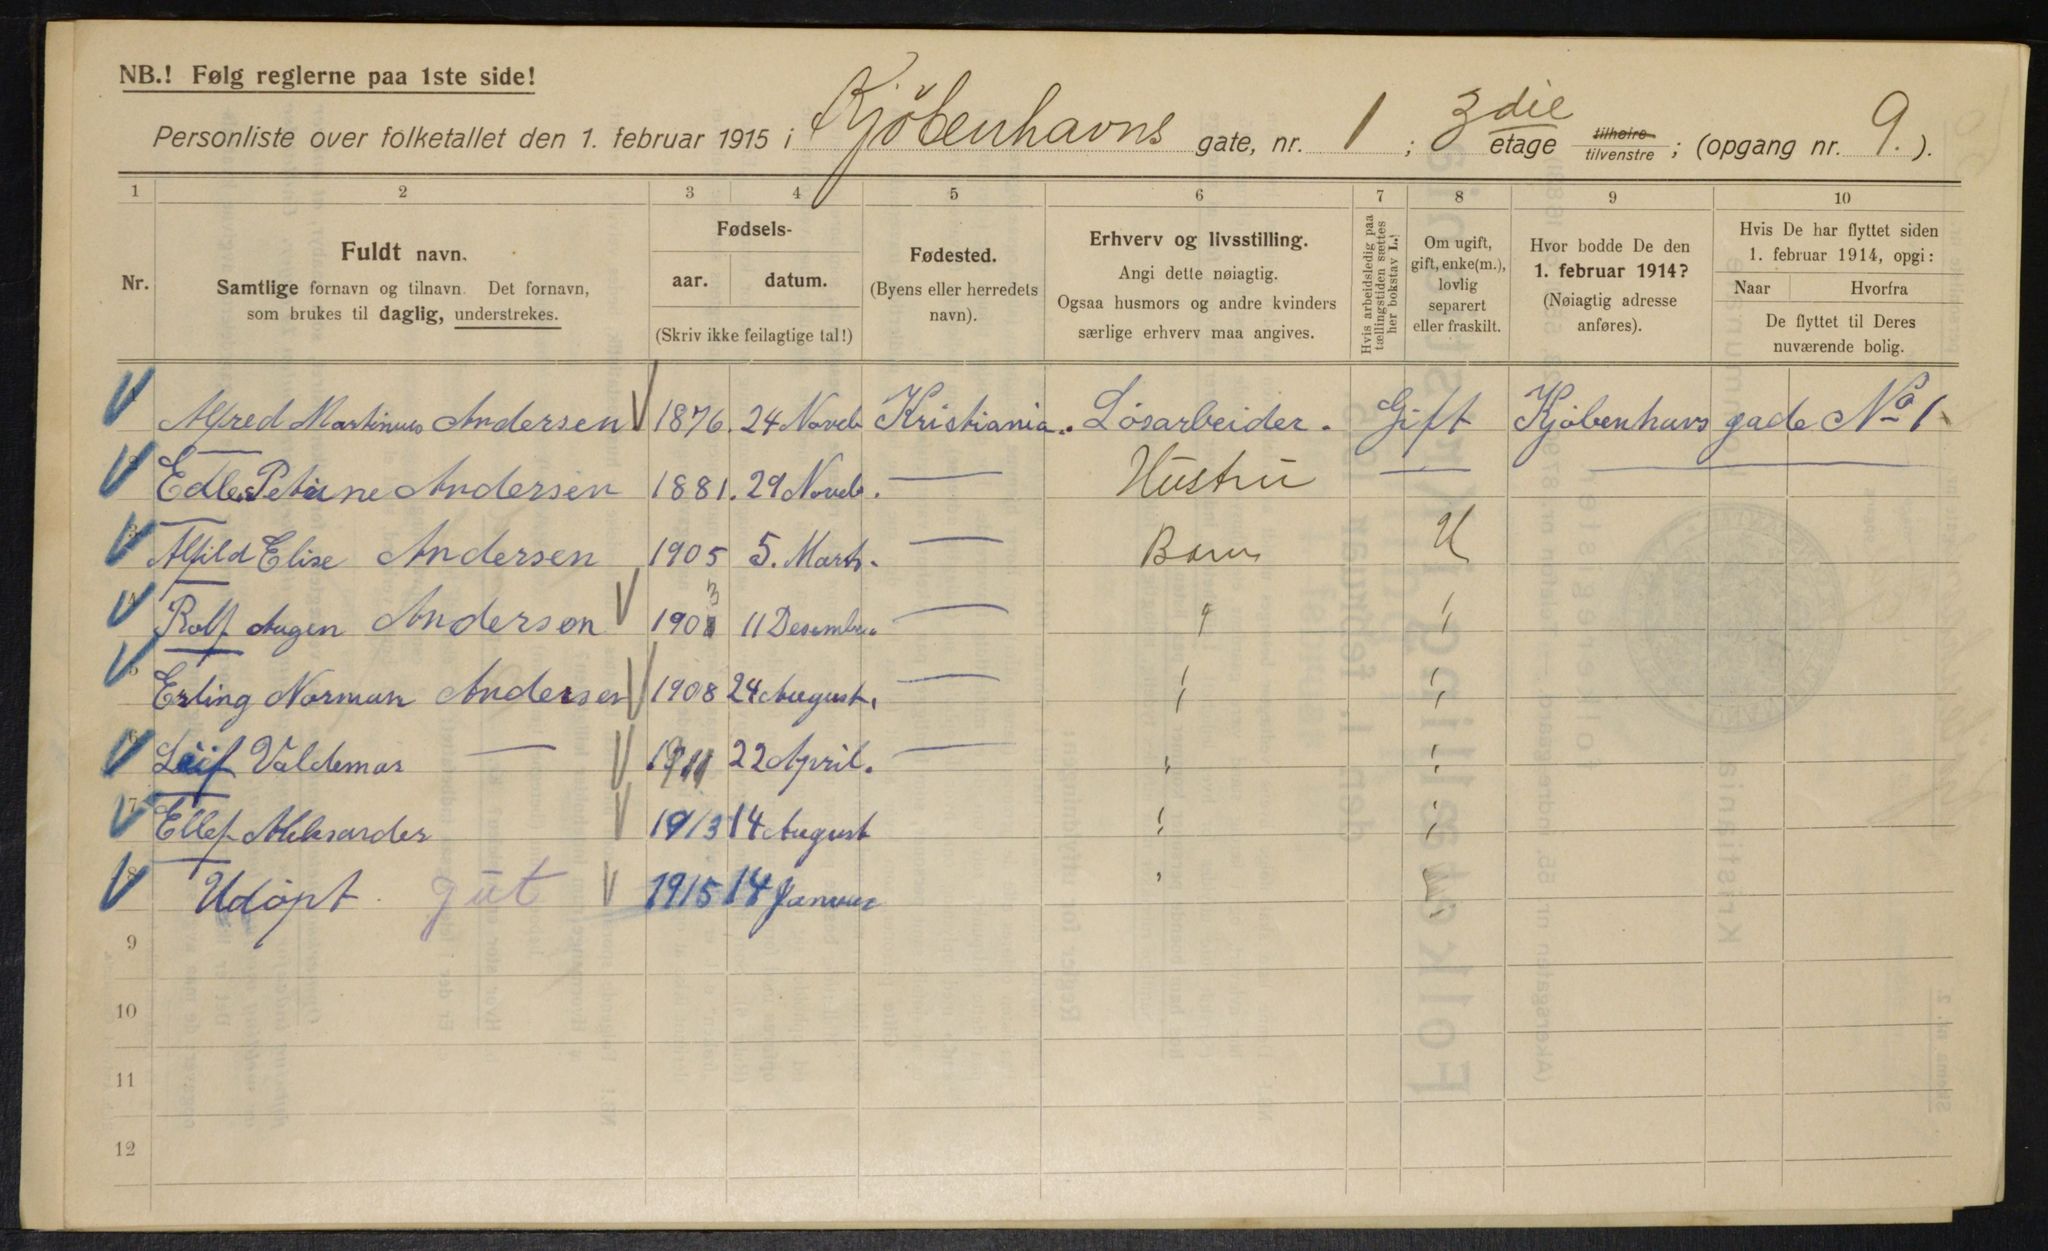 NB.! Følg reglerne paa 1ste side!
Personliste over folketallet den 1. februar 1915 i Kjöbenhavns gate, nr. 1 ; 3die etage tilhøire tilvenstre ; (opgang nr. 9. ).
1 2 3 4 5 6 7 8 9 10
Nr.
Fuldt navn.
Samtlige fornavn og tilnavn. Det fornavn,
som brukes til daglig, understrekes.
Fødsels-
aar. datum.
(Skriv ikke feilagtige tal!)
Fødested.
(Byens eller herredets
navn).
Erhverv og livsstilling.
Angi dette nøiagtig.
Ogsaa husmors og andre kvinders
særlige erhverv maa angives.
Hvis arbeidsledig paa
tællingstiden sættes
her bokstav L.!
Om ugift,
gift, enke(m.),
lovlig
separert
eller fraskilt.
Hvor bodde De den
1. februar 1914?
(Nøiagtig adresse
anføres).
Hvis De har flyttet siden
1. februar 1914, opgi:
Naar Hvorfra
De flyttet til Deres
nuværende bolig.
Alfred Martinus Andersen 1876. 24 Noveb Kristiania. Løsarbeider. Gift Kjøbenhavs gade No 1
Petrine Andersen 1881. 29 Noveb. — Hustru — —
Alfild Elise Andersen 1905 5. Marts. — Barn U
4 Rolf Augen Andersen 1903 11 Desember — " "
5 Erling Norman Andersen 1908 24 August. — " "
6 Leif Valdemar — 1911 22 April. — " "
7 Ellef Aleksander 1913 14 August " "
8 Udöpt gut 1915 14 Januar "
9
10
11
12